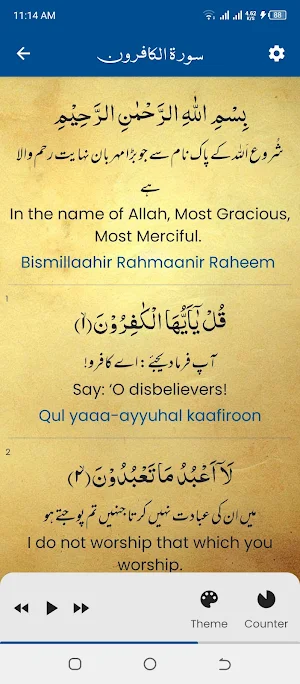 11:14 AM
4.62 K/s
88
سورة الكافرون
بِسْمِ اللّٰهِ الرَّحْمٰنِ الرَّحِيْمِ
شُروع اَللہ کے پاک نام سے جو بڑا مہربان نہایت رحم والا
ہے
In the name of Allah, Most Gracious,
Most Merciful.
Bismillaahir Rahmaanir Raheem
1
قُلْ يٰۤاَيُّهَا الْكٰفِرُوْنَ(۱)
آپ فرما دیجئے : اے کافرو!
Say: ‘O disbelievers!
Qul yaaa-ayyuhal kaafiroon
2
لَاۤ اَعْبُدُ مَا تَعْبُدُوْنَ(۲)
میں ان کی عبادت نہیں کرتا جنہیں تم پوجتے ہو
I do not worship that which you
worship.
Theme
Counter